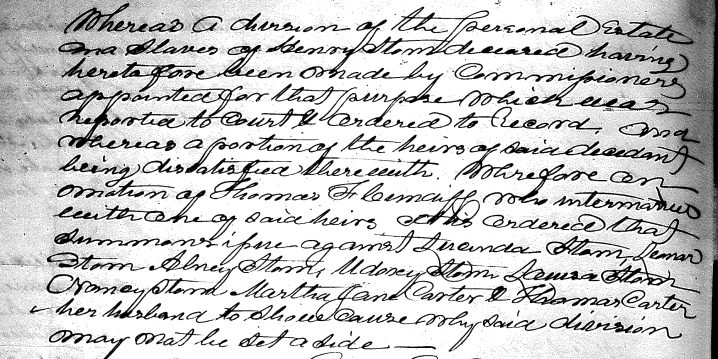 Whereas a division of the personal Estate
and Slaves of Henry Stom deceased having
heretofore been made by Commissioners
appointed for that purpose which was
reported to Court & ordered to Record. And
whereas a portion of the heirs of said decedant
being disatisfied therewith. Wherefore on
motion of Thomas F who intermarried
with one of said heirs It is ordered that
summons issue against Luranda Stom,
Stom Abney Stom, Udoxey Stom Laura Stom
Nancy Stom Martha Jane Carter & Thomas Carter
her husband to show cause why said division
may not be set a side —